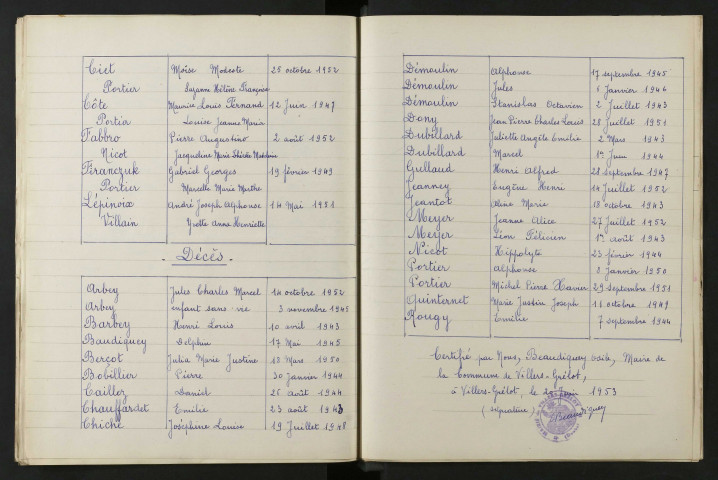 Ciet Moïse Modeste 25 octobre 1952
Portier Suzanne Hélène Françoise
Côte Maurice Louis Fernand 12 Juin 1947
Portier Louise Jeanne Maria
Fabbro Pierre Augustino 2 août 1952
Nicot Jacqueline Marie Madeleine
Franczuk Gabriel Georges 19 février 1943
Portier Marcelle Marie Marthe
Lépinoix André Joseph Alphonse 14 Mai 1951
Villain Yvette Anna Henriette
- Décès -
Arbey Jules Charles Marcel 14 octobre 1952
Arbey enfant sans vie 3 novembre 1945
Barbey Henri Louis 10 avril 1943
Baudiquey Delphin 17 Mai 1945
Berçot Julia Marie Justine 18 Mars 1950
Bobillier Pierre 30 Janvier 1944
Caillez Daniel 25 août 1944
Chauffardet Emilie 23 août 1943
Chiche Joséphine Louise 19 Juillet 1948
Démoulin Alphonse 17 septembre 1945
Démoulin Jules 6 Janvier 1946
Démoulin Stanislas Octavien 2 Juillet 1943
Dony Jean Pierre Charles Louis 28 Juillet 1951
Dubillard Juliette Angèle Emilie 2 Mars 1943
Dubillard Marcel 1er Juin 1944
Guillaud Henri Alfred 28 septembre 1947
Jeanney Eugène Henri 14 Juillet 1952
Jeantot Aline Marie 18 octobre 1943
Meyer Jeanne Alice 27 Juillet 1952
Meyer Léon Félicien 1er août 1943
Nicot Hippolyte 23 février 1944
Portier Alphonse 8 Janvier 1950
Portier Michel Pierre Xavier 29 septembre 1951
Quinternet Marie Justin Joseph 11 octobre 1949
Rougy Emilie 7 septembre 1944
Certifié par Nous, Beaudiquey Odile, Maire de
la Commune de Villers-Grélot,
à Villers-Grélot, le Juin 1953
(signature) Beaudiquey